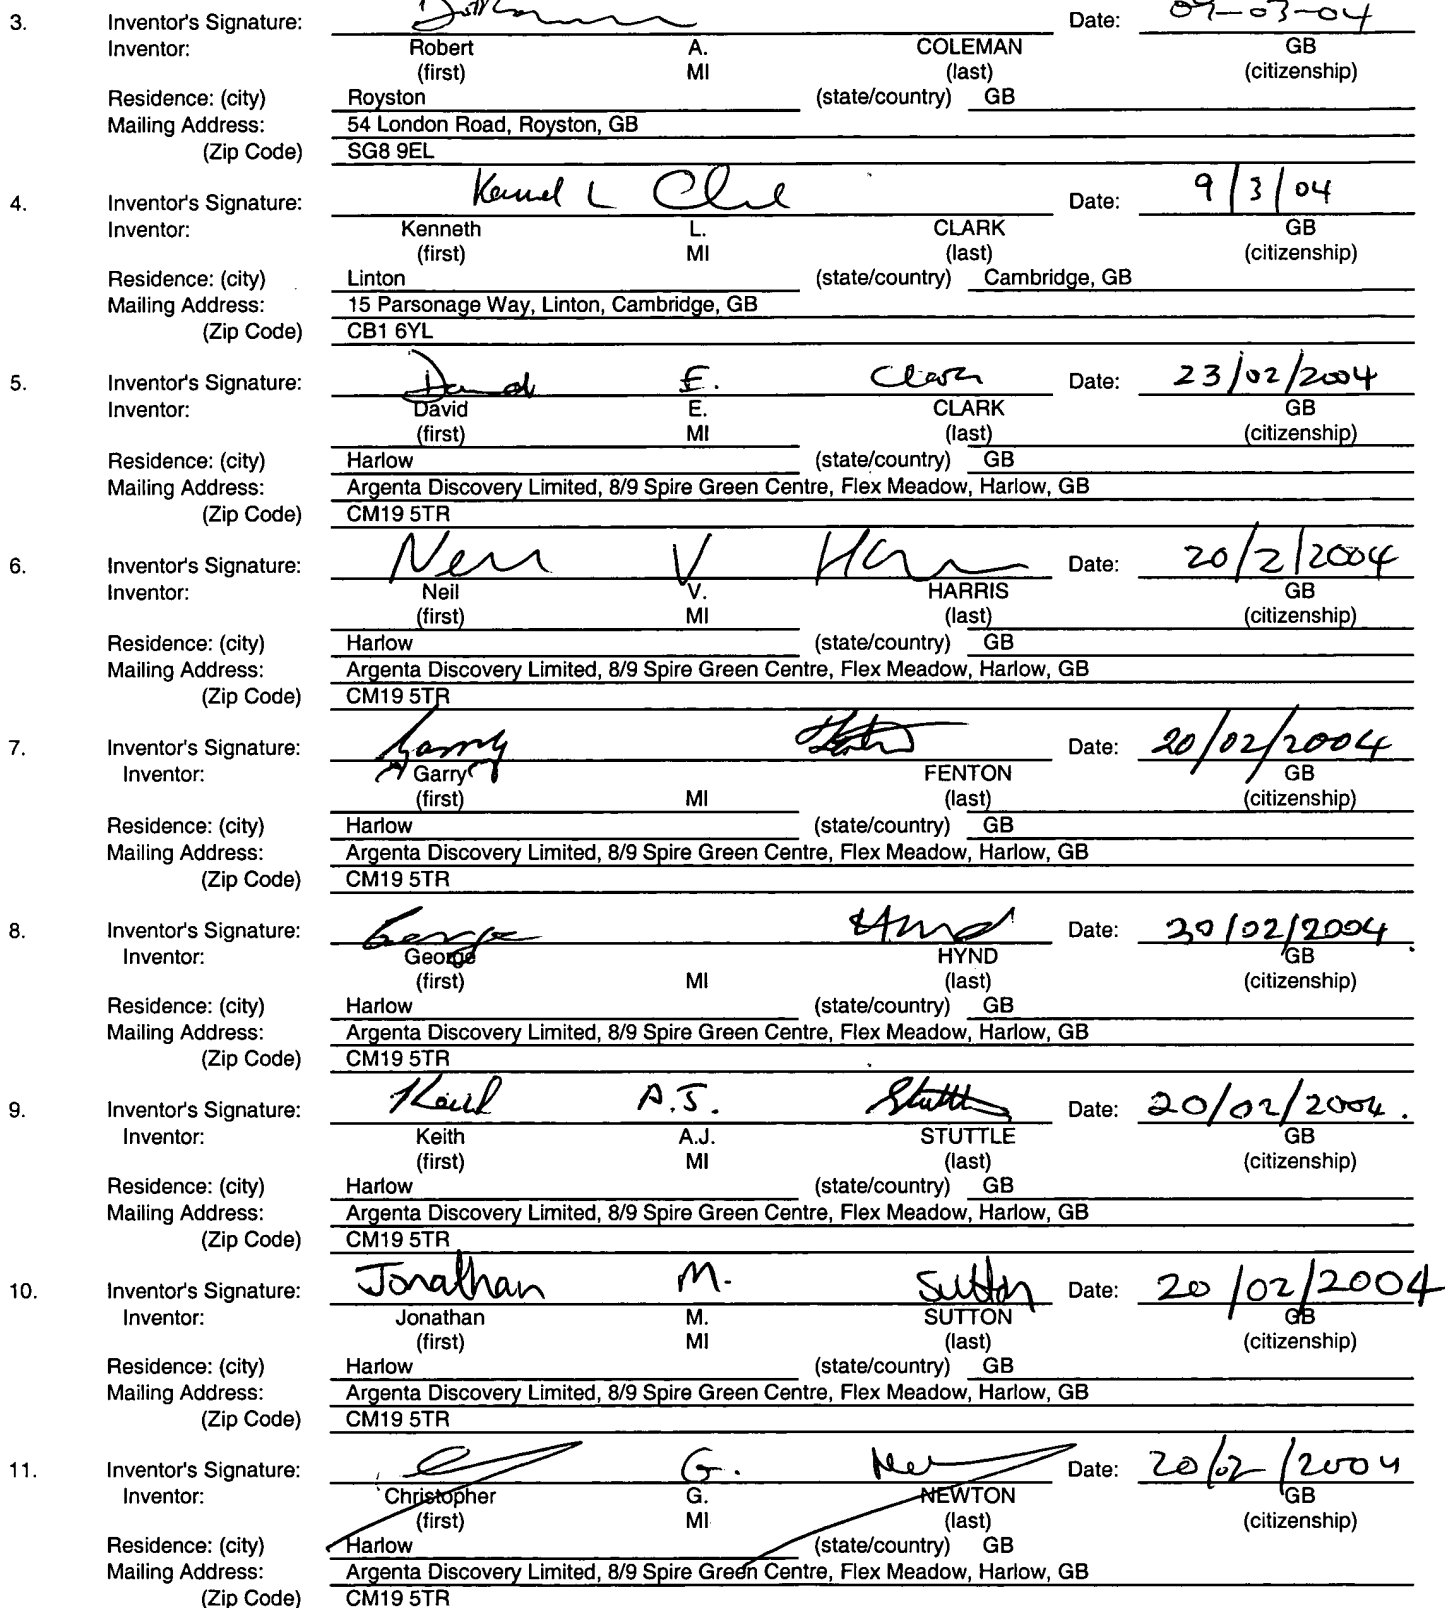 3. Inventor's Signature: Date: 09-03-04
Inventor: Robert A. COLEMAN GB
(first) MI (last) (citizenship)
Residence: (city) Royston (state/country) GB
Mailing Address: 54 London Road, Royston, GB
(Zip Code) SG8 9EL
4. Inventor's Signature: L Date: 9/3/04
Inventor: Kenneth L. CLARK GB
(first) MI (last) (citizenship)
Residence: (city) Linton (state/country) Cambridge, GB
Mailing Address: 15 Parsonage Way, Linton, Cambridge, GB
(Zip Code) CB1 6YL
5. Inventor's Signature: David E. Clark Date: 23/02/2004
Inventor: David E. CLARK GB
(first) MI (last) (citizenship)
Residence: (city) Harlow (state/country) GB
Mailing Address: Argenta Discovery Limited, 8/9 Spire Green Centre, Flex Meadow, Harlow, GB
(Zip Code) CM19 5TR
6. Inventor's Signature: Neil V Date: 20/2/2004
Inventor: Neil V. HARRIS GB
(first) MI (last) (citizenship)
Residence: (city) Harlow (state/country) GB
Mailing Address: Argenta Discovery Limited, 8/9 Spire Green Centre, Flex Meadow, Harlow, GB
(Zip Code) CM19 5TR
7. Inventor's Signature: Garry Date: 20/02/2004
Inventor: Garry FENTON GB
(first) MI (last) (citizenship)
Residence: (city) Harlow (state/country) GB
Mailing Address: Argenta Discovery Limited, 8/9 Spire Green Centre, Flex Meadow, Harlow, GB
(Zip Code) CM19 5TR
8. Inventor's Signature: George Hynd Date: 20/02/2004.
Inventor: George HYND GB
(first) MI (last) (citizenship)
Residence: (city) Harlow (state/country) GB
Mailing Address: Argenta Discovery Limited, 8/9 Spire Green Centre, Flex Meadow, Harlow, GB
(Zip Code) CM19 5TR
9. Inventor's Signature: Keith A.J. Stuttle Date: 20/02/2004.
Inventor: Keith A.J. STUTTLE GB
(first) MI (last) (citizenship)
Residence: (city) Harlow (state/country) GB
Mailing Address: Argenta Discovery Limited, 8/9 Spire Green Centre, Flex Meadow, Harlow, GB
(Zip Code) CM19 5TR
10. Inventor's Signature: Jonathan M. Sutton Date: 20/02/2004
Inventor: Jonathan M. SUTTON GB
(first) MI (last) (citizenship)
Residence: (city) Harlow (state/country) GB
Mailing Address: Argenta Discovery Limited, 8/9 Spire Green Centre, Flex Meadow, Harlow, GB
(Zip Code) CM19 5TR
11. Inventor's Signature: G. Date: 20/02/2004
Inventor: Christopher G. NEWTON GB
(first) MI (last) (citizenship)
Residence: (city) Harlow (state/country) GB
Mailing Address: Argenta Discovery Limited, 8/9 Spire Green Centre, Flex Meadow, Harlow, GB
(Zip Code) CM19 5TR